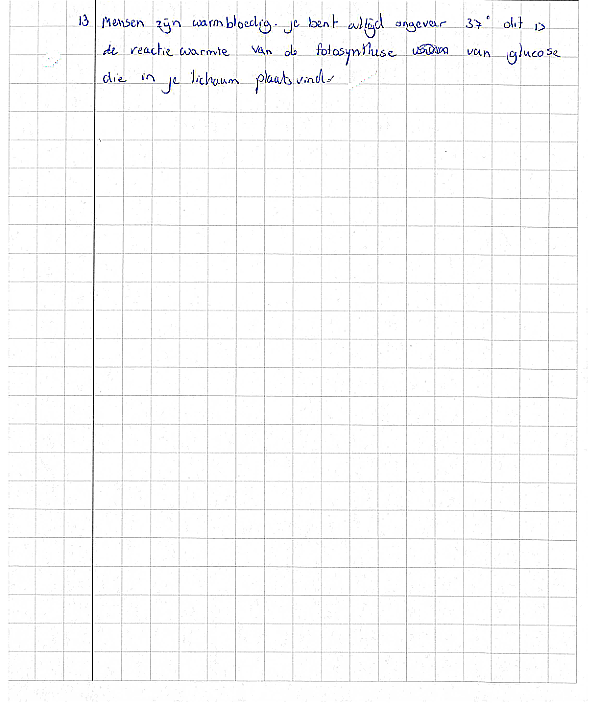 13 Mensen zijn warmbloedig. je bent altijd ongeveer 37° dit is
de reactiewarmte van de fotosynthese van glucose
die in je lichaam plaats vind.